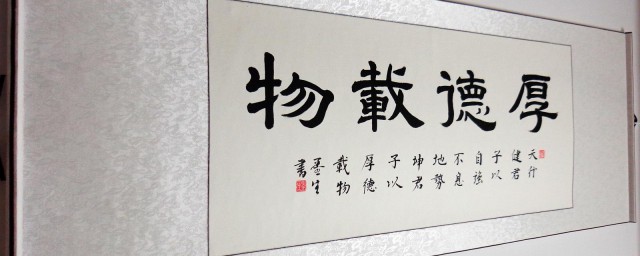 厚德載物
天行
健君
子以
自強
不息
地勢
坤君
子以
厚德
載物
書